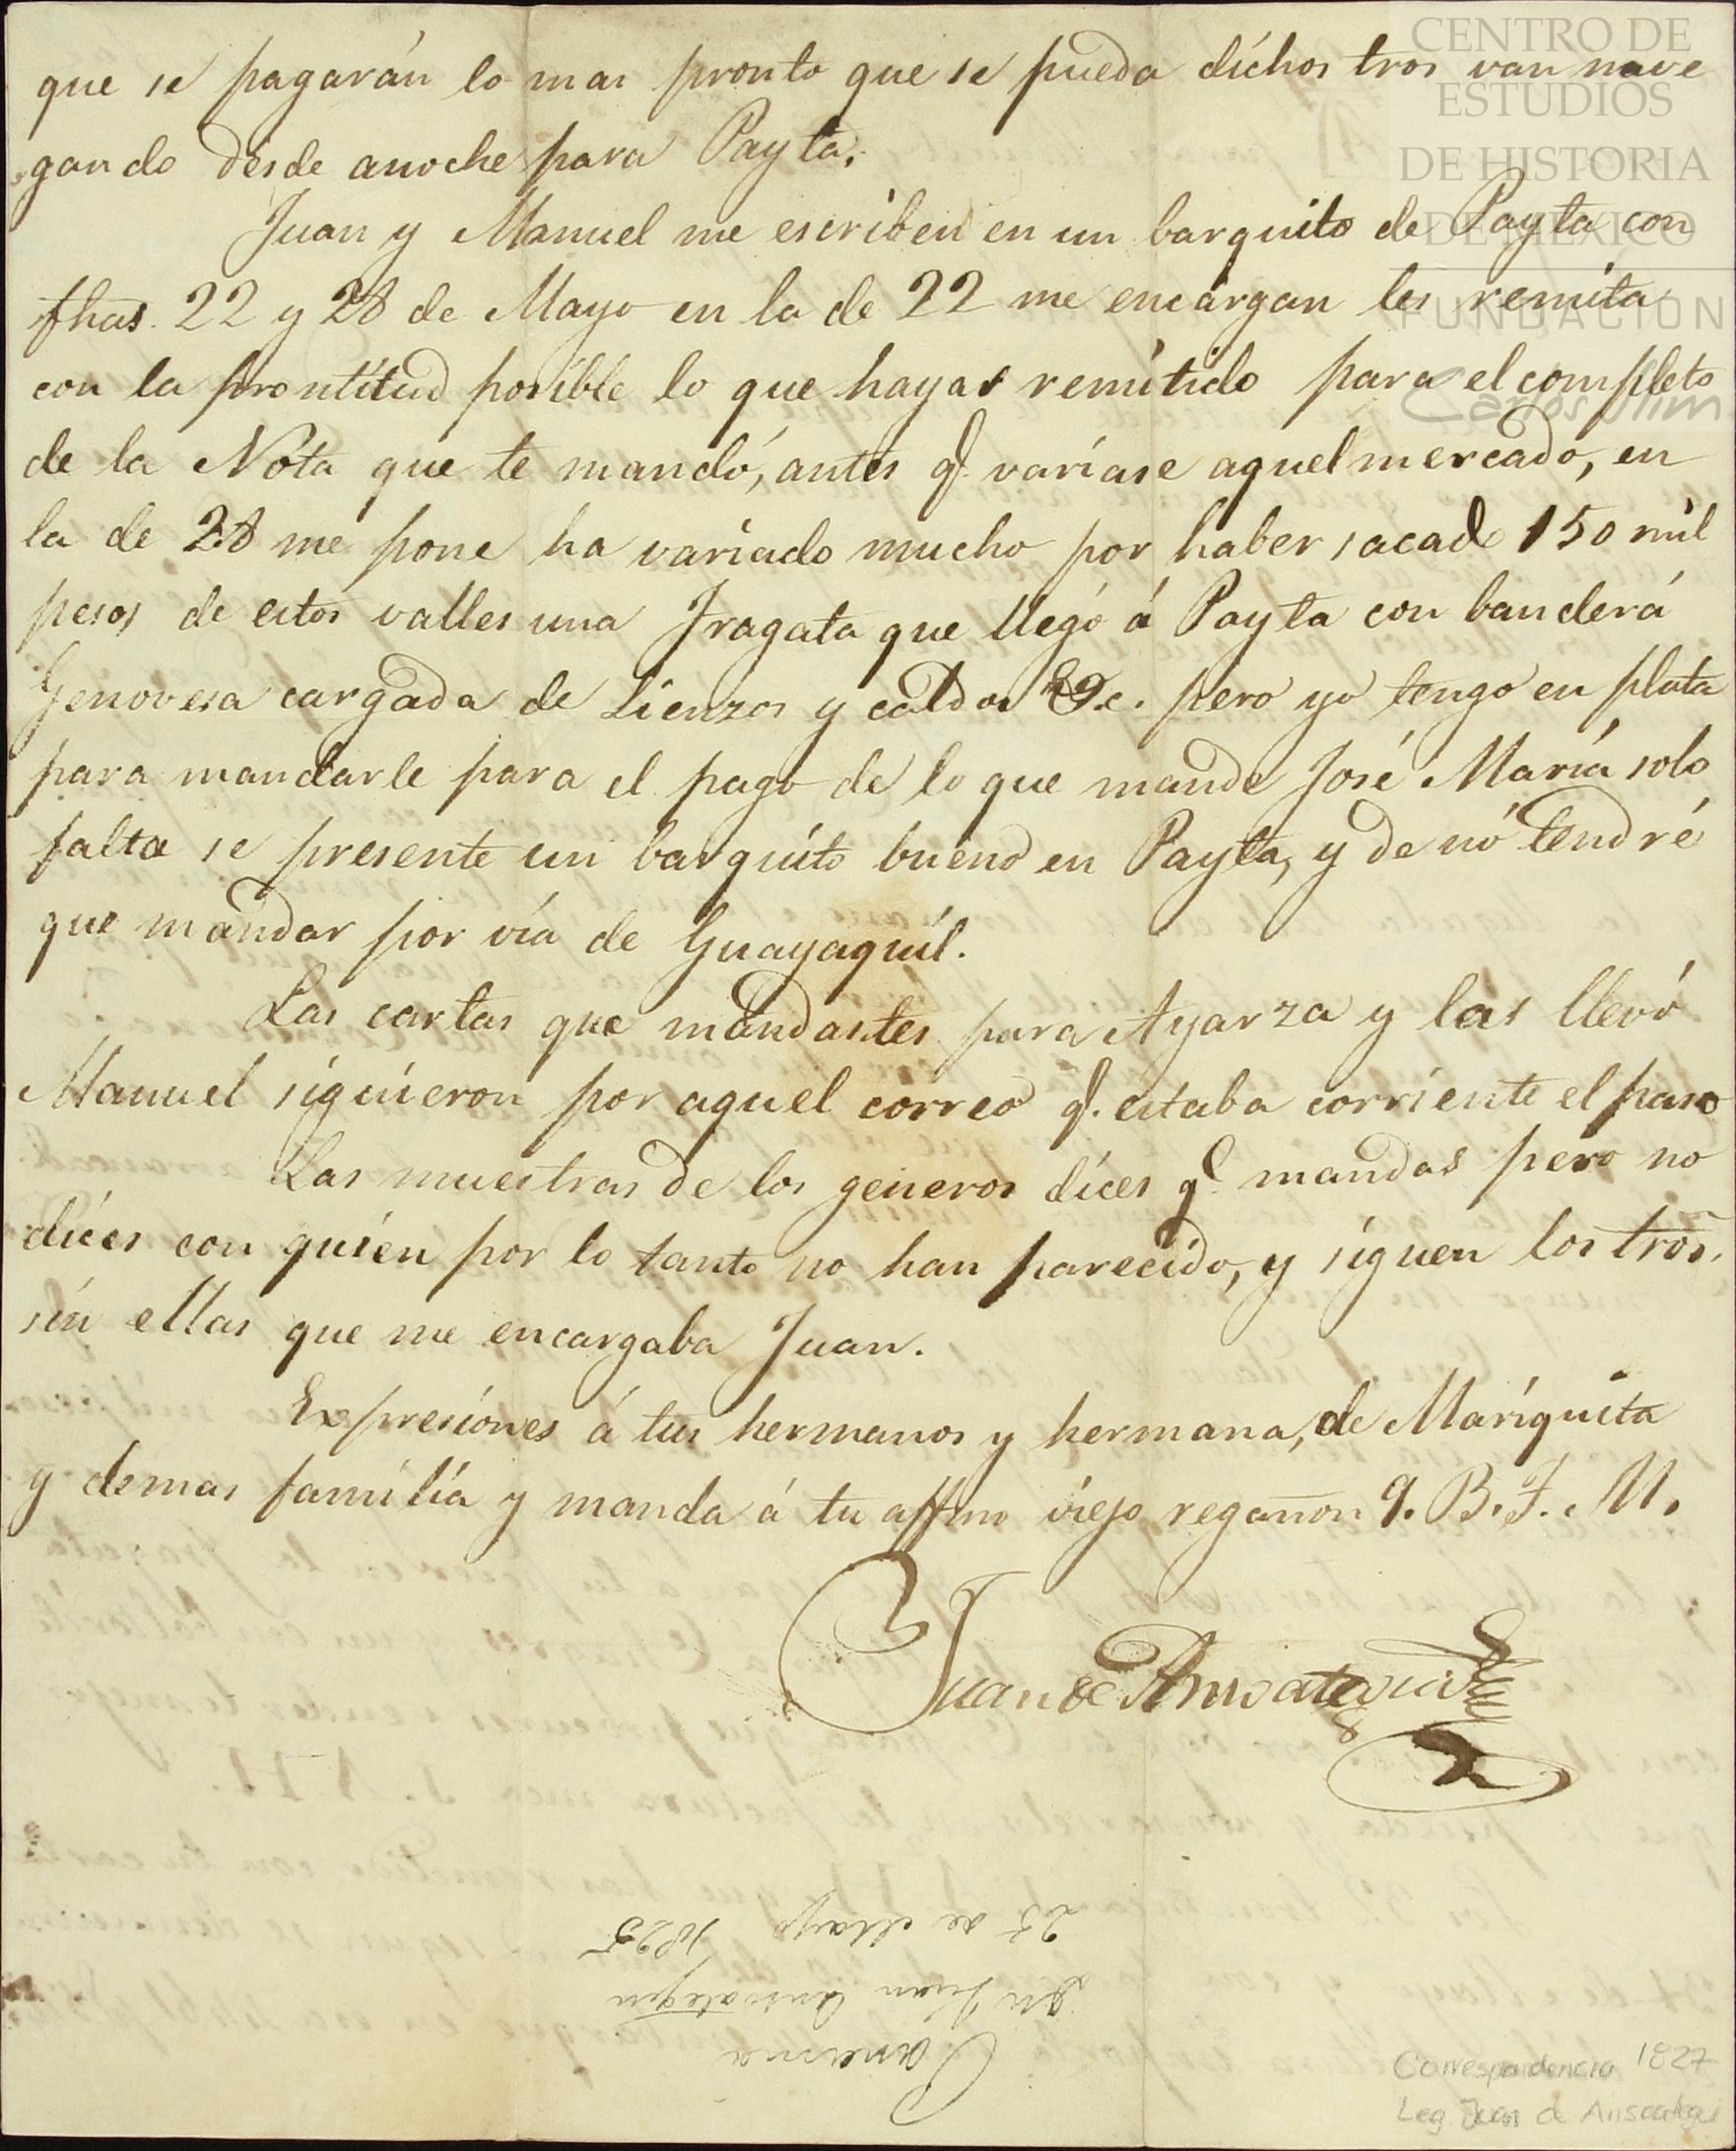 que se pagarán lo mas pronto que se pueda dichos tros van nave
gando desde anoche para Payta.
Juan y Manuel me escriben en un barquito de Payta con
fhas. 22 y 28 de Mayo en la de 22 me encargan les remita
con la prontitud posible lo que hayas remitido para el completo
de la Nota que te mandó, antes q.e variase aquel mercado, en
la de 28 me pone ha variado mucho por haber sacado 150 mil
pesos de estos valles una Fragata que llegó á Payta con banderá
Genovesa cargada de Lienzos y caldos &c. pero yo tengo en plata
para mandarle para el pago de lo que mande José María solo
falta se presente un barquito bueno en Payta, y de nó tendré
que mandar por vía de Guayaquil.
Las cartas que mandastes para Ayarza y las llevó
Manuel siguieron por aquel correo q.e estaba corriente el paso
Las muestras de los generos dices q.e mandas pero no
dices con quien por lo tanto no han parecido, y siguen los tros.
sin ellas que me encargaba Juan.
Expresiones á tus hermanos y hermana, de Mariquita
y demas familia y manda á tu affmo viejo regañon q. B. T. M.
Juan de Ansoategui
Panama
Dn Juan Ansoategui
25 de Mayo 1825
Correspondencia 1827
Leg Juan de Ansoategui
CENTRO DE
ESTUDIOS
DE HISTORIA
DE MÉXICO
FUNDACIÓN
Carlos Slim